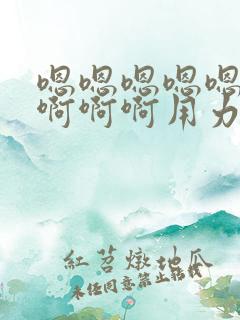 嗯嗯嗯嗯嗯
啊啊啊用力
红苕燉地瓜
未经同意禁止转载